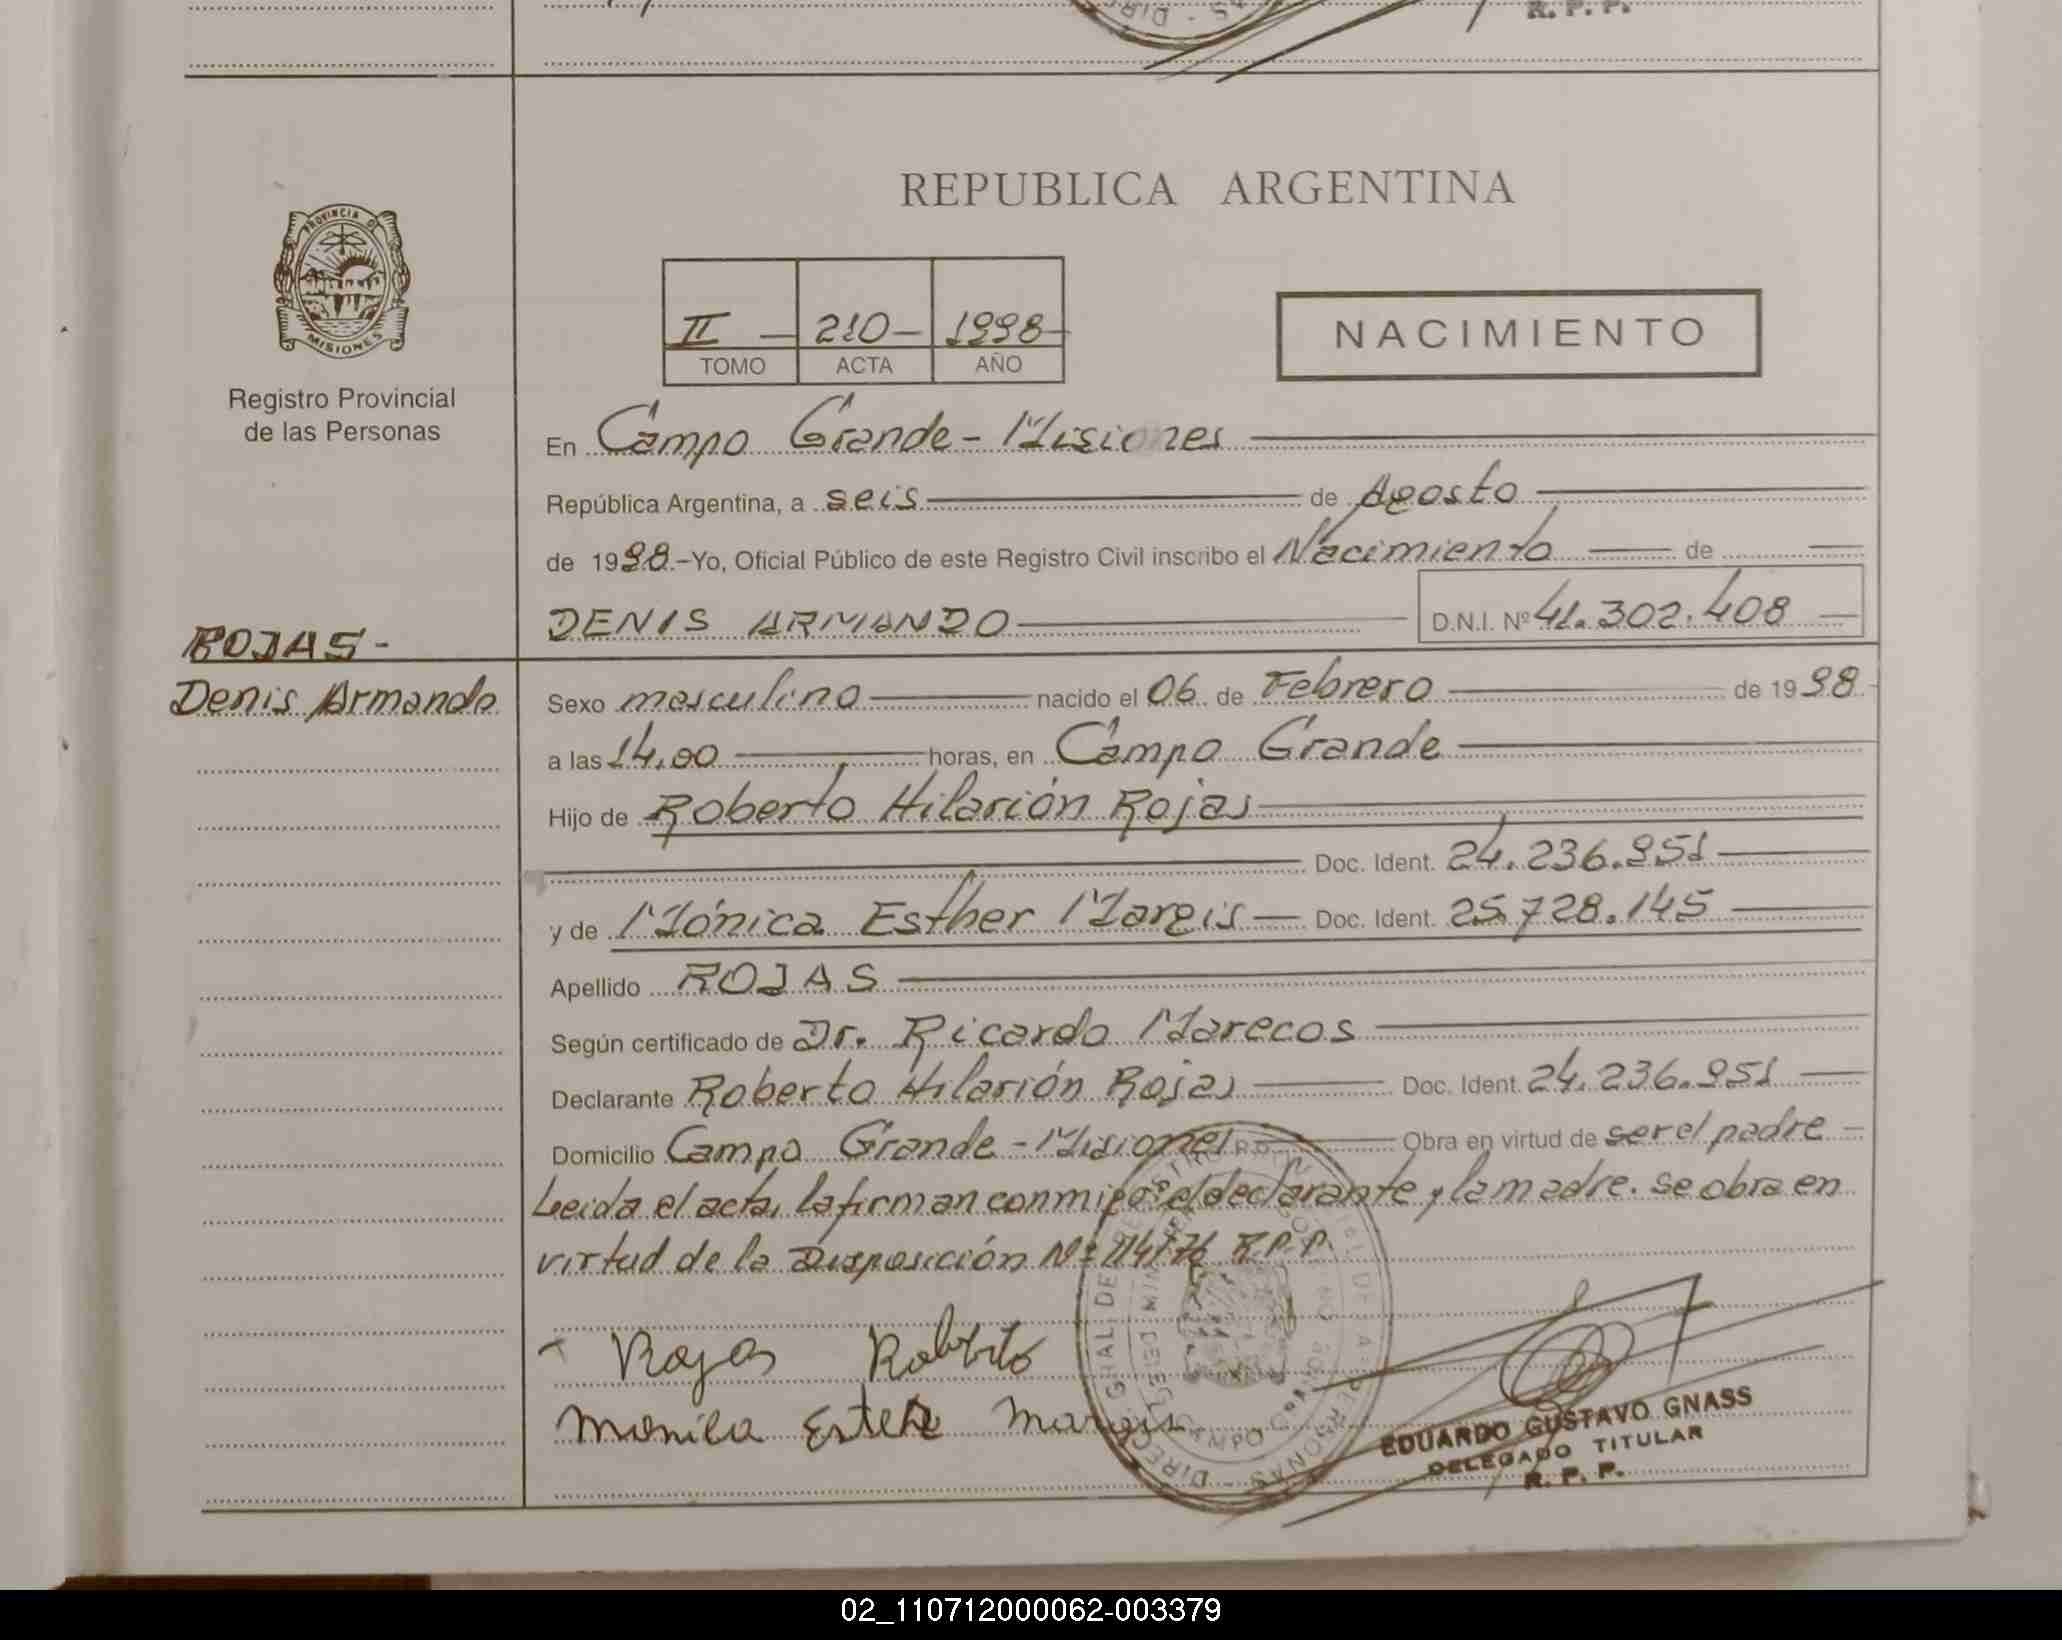 R. P. P.
REPUBLICA ARGENTINA
PROVINCIA D
MISIONES
Registro Provincial
de las Personas
II — 210 — 1998 —
TOMO ACTA AÑO
NACIMIENTO
En Campo Grande - Misiones
República Argentina, a seis de Agosto
de 1998.-Yo, Oficial Público de este Registro Civil inscribo el Nacimiento de
DENIS ARMANDO D.N.I. Nº 41.302.408
ROJAS -
Denis Armando
Sexo masculino nacido el 06 de Febrero de 1998.-
a las 14,00 horas, en Campo Grande
Hijo de Roberto Hilarión Rojas
Doc. Ident. 24.236.951
y de Mónica Esther Margis Doc. Ident. 25.728.145
Apellido ROJAS
Según certificado de Dr. Ricardo Marecos
Declarante Roberto Hilarión Rojas Doc. Ident. 24.236.951
Domicilio Campo Grande - Misiones Obra en virtud de ser el padre
Leida el acta, la firman conmigo el declarante y la madre. se obra en
virtud de la Disposición Nº R.P.P.
Rojas Roberto
Monica Ester Margis
EDUARDO GUSTAVO GNASS
DELEGADO TITULAR
R. P. P.
02_110712000062-003379